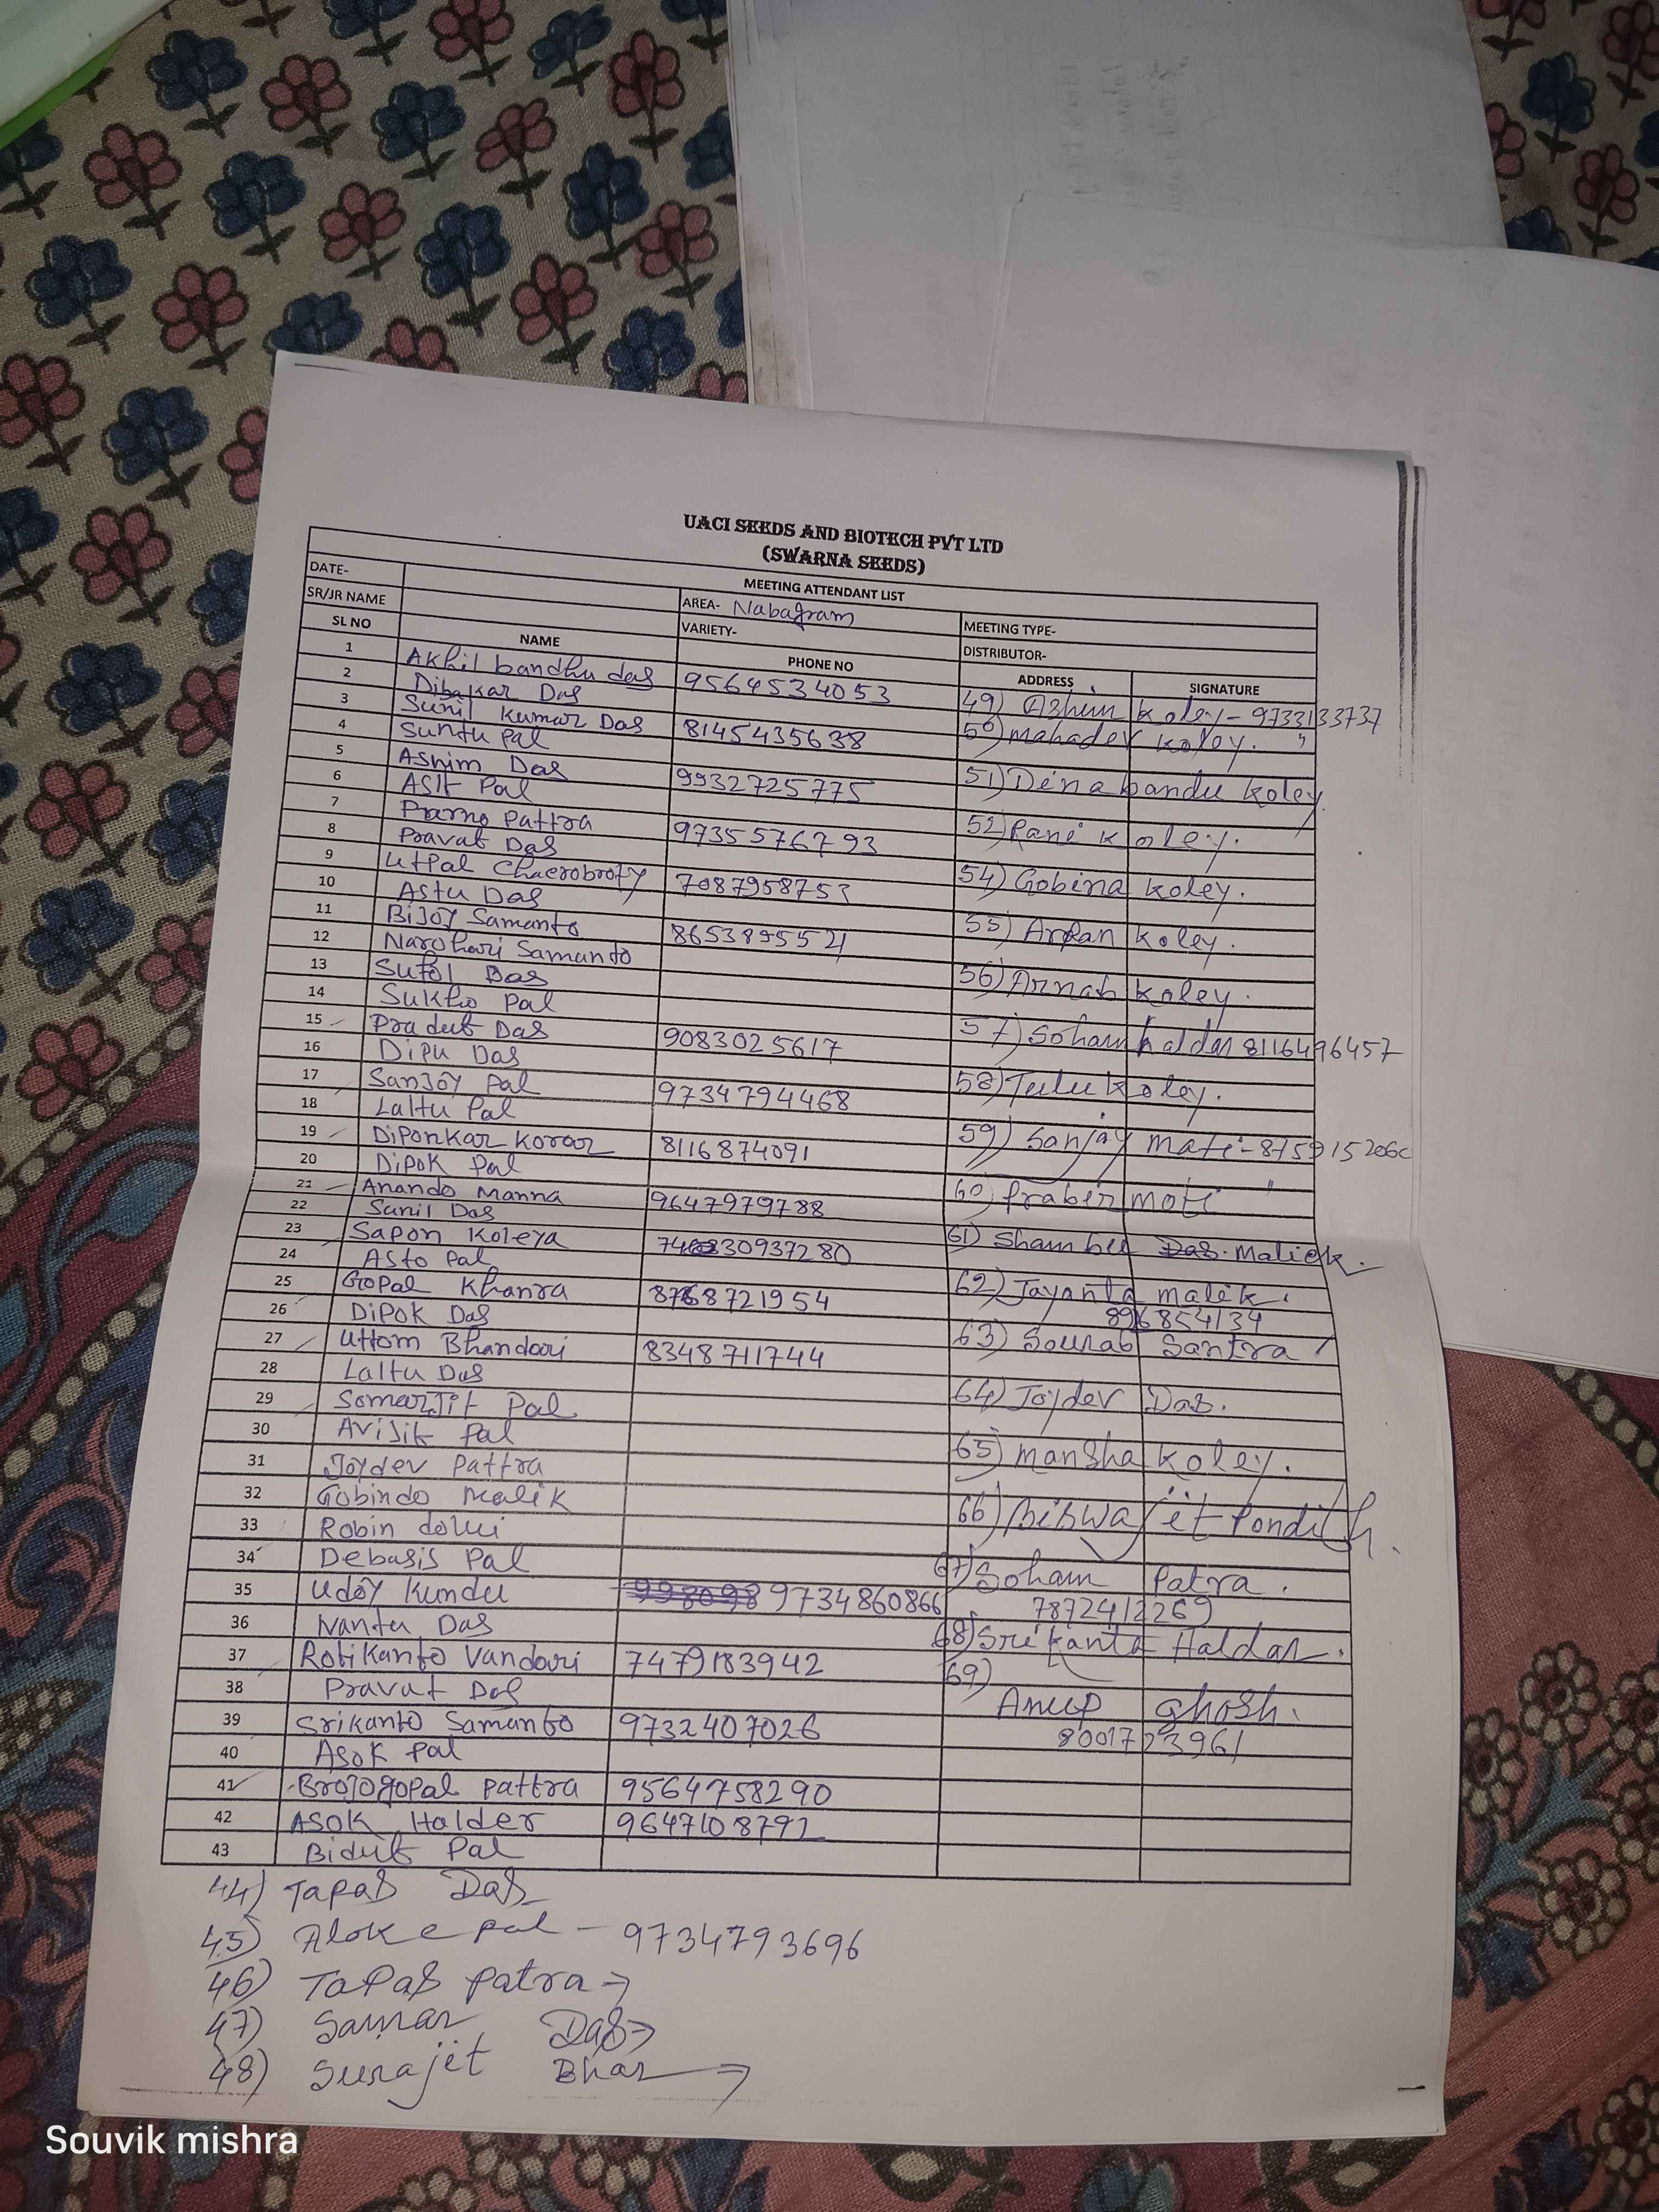 UACI SEEDS AND BIOTECH PVT LTD
(SWARNA SEEDS)
MEETING ATTENDANT LIST
DATE- AREA- Nabagram MEETING TYPE-
SR/JR NAME VARIETY- DISTRIBUTOR-
SL NO NAME PHONE NO ADDRESS SIGNATURE
1 Akhil bandhu das 9564534053
2 Dibakar Das
3 Sunil Kumar Das 8145435638
4 Suntu Pal
5 Asnim Das 9932725775
6 Asit Pal
7 Pattra 9735576793
8 Pravat Das
9 Utpal Chacrobroty 7087958753
10 Astu Das
11 Bijoy Samanto
12 Narohari Samanto
13 Sufol Das
14 Sukho Pal
15 Pradut Das 9083025617
16 Dipu Das
17 Sanjoy Pal 9734794468
18 Laltu Pal
19 Diponkar Korar 8116874091
20 Dipok Pal
21 Anando Manna 9647979788
22 Sunil Das
23 Sapon Koleya
24 Asto Pal
25 Gopal Khanra 8768721954
26 Dipok Das
27 Uttom Bhandari 8348711744
28 Laltu Das
29 Somarjit Pal
30 Avijit Pal
31 Joydev Pattra
32 Gobindo Malik
33 Robin dolui
34 Debasis Pal
35 Udoy Kundu 9734860866
36 Nantu Das
37 Robikanto Vandari 7479183942
38 Pravat Das
39 Srikanto Samanto 9732407026
40 Asok Pal
41 Brojogopal Pattra 9564758290
42 Asok Halder 9647108792
43 Bidut Pal
44) Tapas Das
45) Aloke pal - 9734793696
46) Tapas patra →
47) Samar Das →
48) Surajit Bhar →
49) Ashim Koley - 9733133737
50) Mahadev Koley. "
51) Dinabandu Koley.
52) Rani Koley.
54) Gobina Koley.
55) Arpan Koley.
56) Arnab Koley.
57) Soham haldar 8116496457
58) Tulu Koley.
59) Sanjay Mati -
60) Prabir Moti "
61) Shambu Das. Malick.
62) Jayanta Malik.
896854134
63) Sourab Santra
64) Joydev Das.
65) Mansha Koley.
66) Biswajit Pondith.
67) Soham Patra.
7872412269
68) Srikanta Haldar.
69)
Anup Ghosh.
8001723961
Souvik mishra